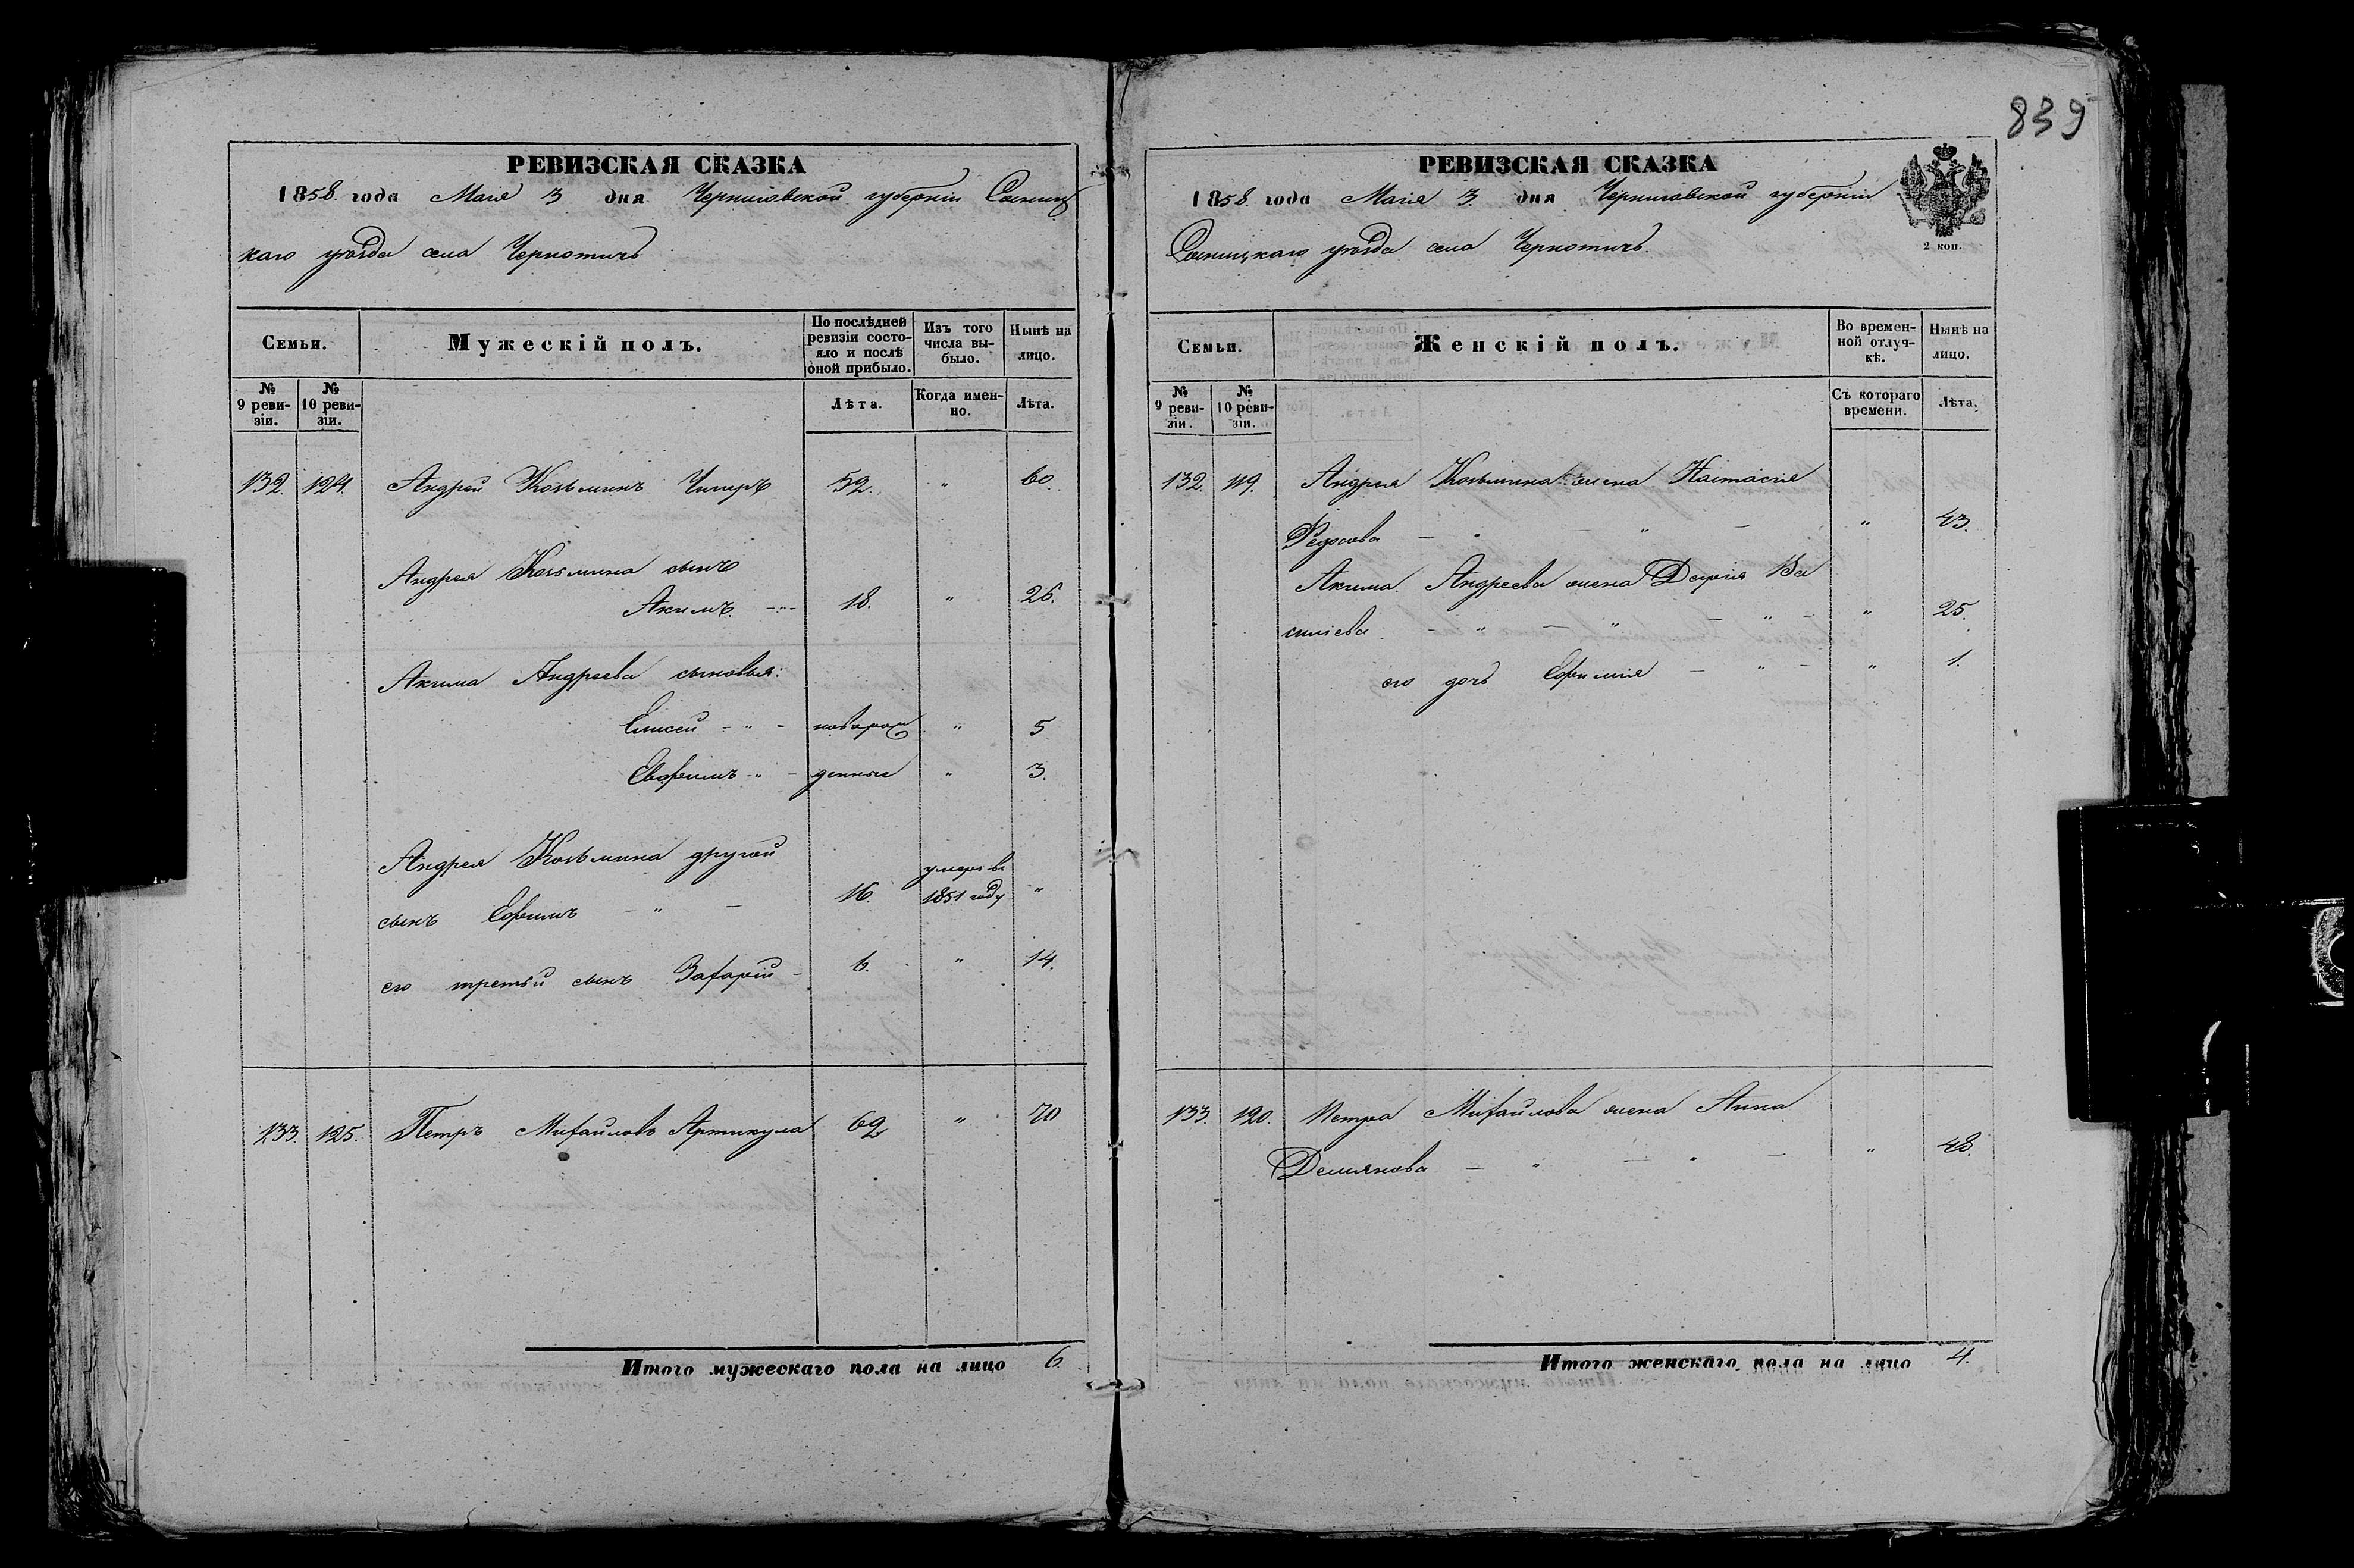 839
РЕВИЗСКАЯ СКАЗКА
1858. года Маія 3 дня Черниговской губерніи Сосниц
каго уѣзда села Чернотичъ
Семьи.
Мужескій полъ.
По послѣдней ревизіи состояло и послѣ оной прибыло.
Изъ того числа выбыло.
Нынѣ на лицо.
№ 9 ревизіи.
№ 10 ревизіи.
Лѣта.
Когда именно.
Лѣта.
132. 124. Андрей Козьминъ 52. " 60.
Андрея Козьмина сынъ
Акимъ - " - 18. " 26.
Акима Андреева сыновья:
Елисей - " - новорож " 5
Евфимъ - " - денные " 3.
Андрея Козьмина другой
сынъ Ефимъ - " - 16. умеръ въ 1851 году "
его третьй сынъ Захарій - 6. " 14.
133. 125. Петръ Михайловъ Артикула 62 " 70
Итого мужескаго пола на лицо 6
РЕВИЗСКАЯ СКАЗКА
1858. года Маія 3. дня Черниговской губерніи
Сосницкаго уѣзда села Чернотичъ.
2 коп.
Семьи.
Женскій полъ.
Во временной отлучкѣ.
Нынѣ на лицо.
№ 9 ревизіи.
№ 10 ревизіи.
Съ котораго времени.
Лѣта.
132. 119. Андрея Козьмина жена Настасія
Федосова - " - " - " 43.
Акима Андреева жена Ва
силіева. - " - " - " - " 25.
его дочь Ефимія - " - " 1.
133. 120. Петра Михайлова жена Анна
Демянова - " - " - " 48.
Итого женскаго пола на лицо 4.